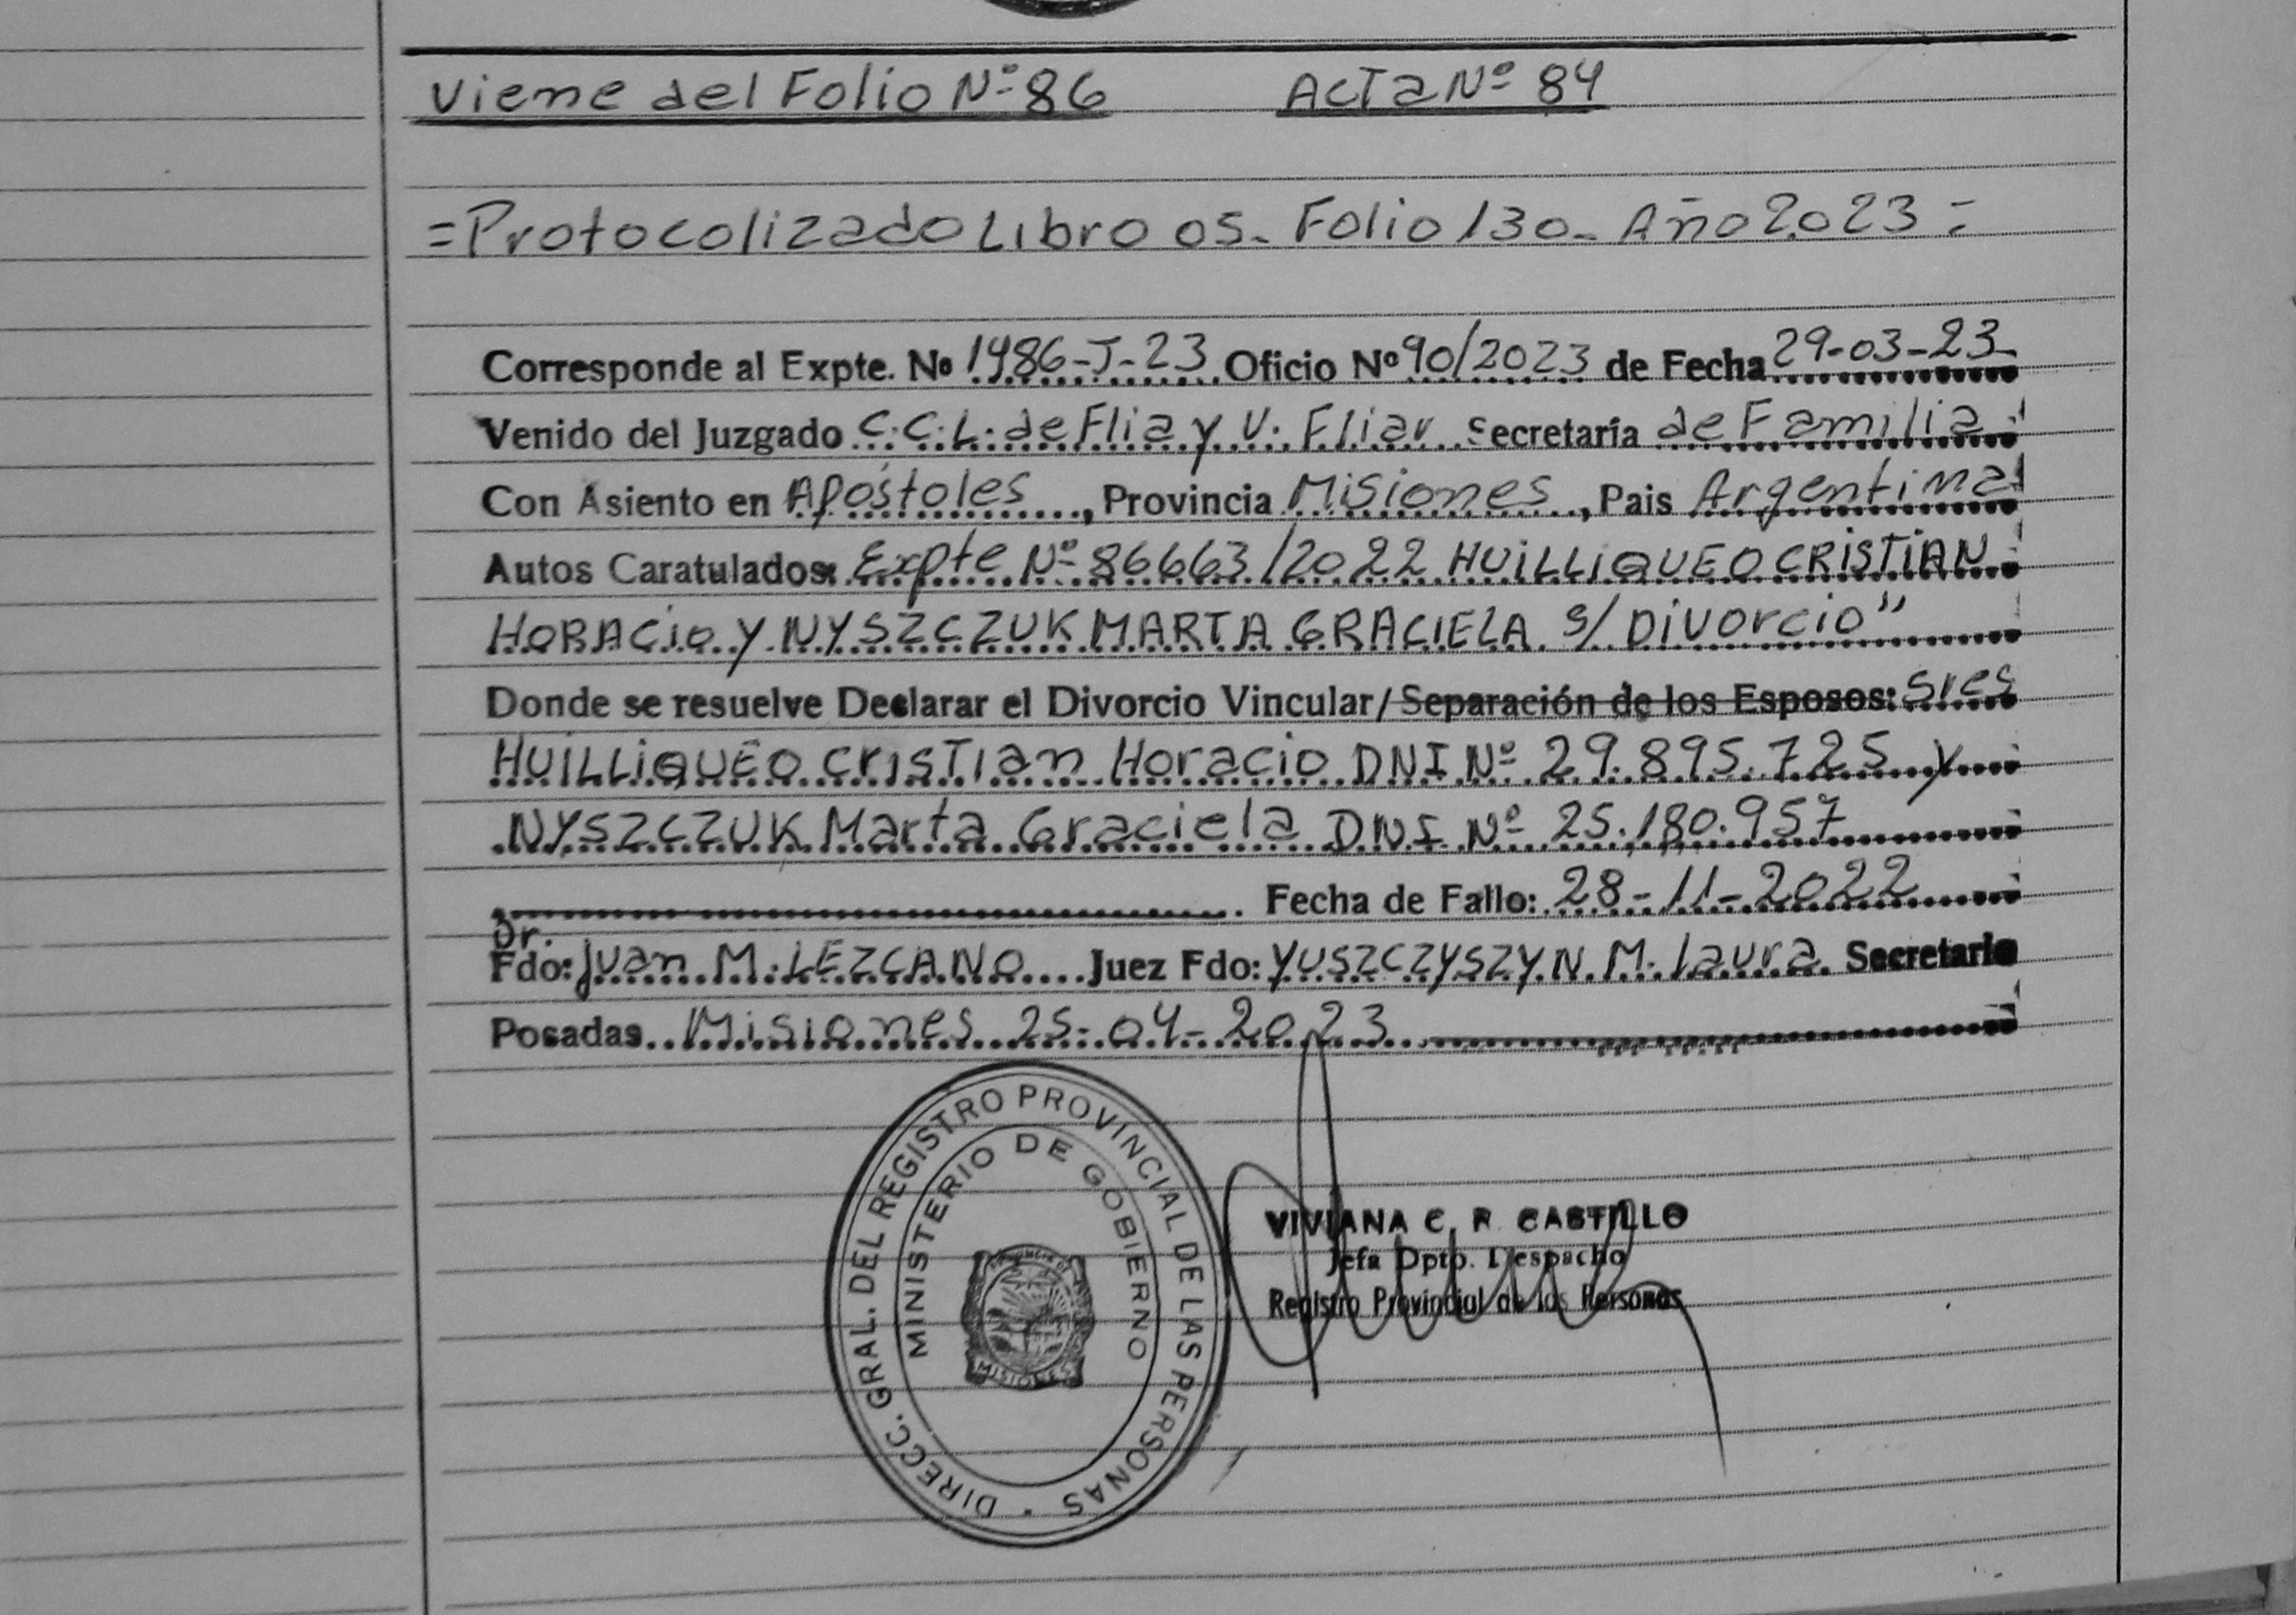 Viene del Folio Nº 86 Acta Nº 84
=Protocolizado Libro 05- Folio 130- Año 2.023=
Corresponde al Expte. Nº 1486-J-23 Oficio Nº 90/2023 de Fecha 29-03-23-
Venido del Juzgado C.C.L. de Flia y V. Fliar Secretaría de Familia
Con Asiento en Apóstoles, Provincia Misiones, Pais Argentina
Autos Caratulados: Expte Nº 86663/2022 HUiLLiQUEO CRISTIAN
HORACIO Y NYSZCZUK MARTA GRACIELA s/ Divorcio"
Donde se resuelve Declarar el Divorcio Vincular/Separación de los Esposos: Sres
HUiLLiQUEO CRISTian Horacio DNI Nº 29.895.725 y
NYSZCZUK Marta Graciela DNI Nº 25.180.957
Fecha de Fallo: 28-11-2022
Dr.
Fdo: Juan M. LEZCANO Juez Fdo: YUSZCZYSZYN M. laura Secretario
Posadas Misiones 25-04-2023
DIRECC. GRAL. DEL REGISTRO PROVINCIAL DE LAS PERSONAS
MINISTERIO DE GOBIERNO
MISIONES
VIVIANA C. R. CASTILLO
Jefa Dpto. Despacho
Registro Provincial de las Personas